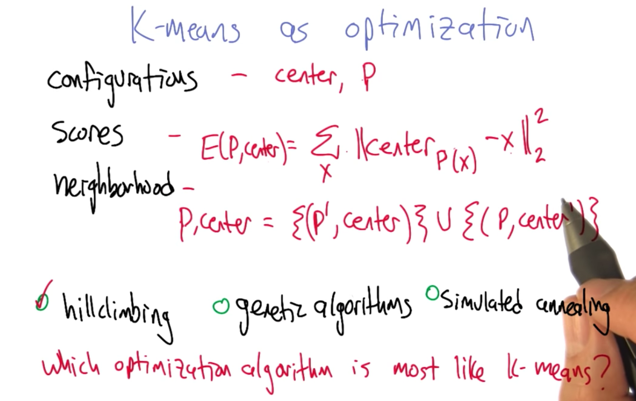 K-means as optimization
configurations - center, P
Scores - E(P,center) = ∑x ||center P(x) - x||₂²
neighborhood -
P,center = {(P', center)} ∪ {(P, center')}
hillclimbing genetic algorithms simulated annealing
which optimization algorithm is most like K-means?